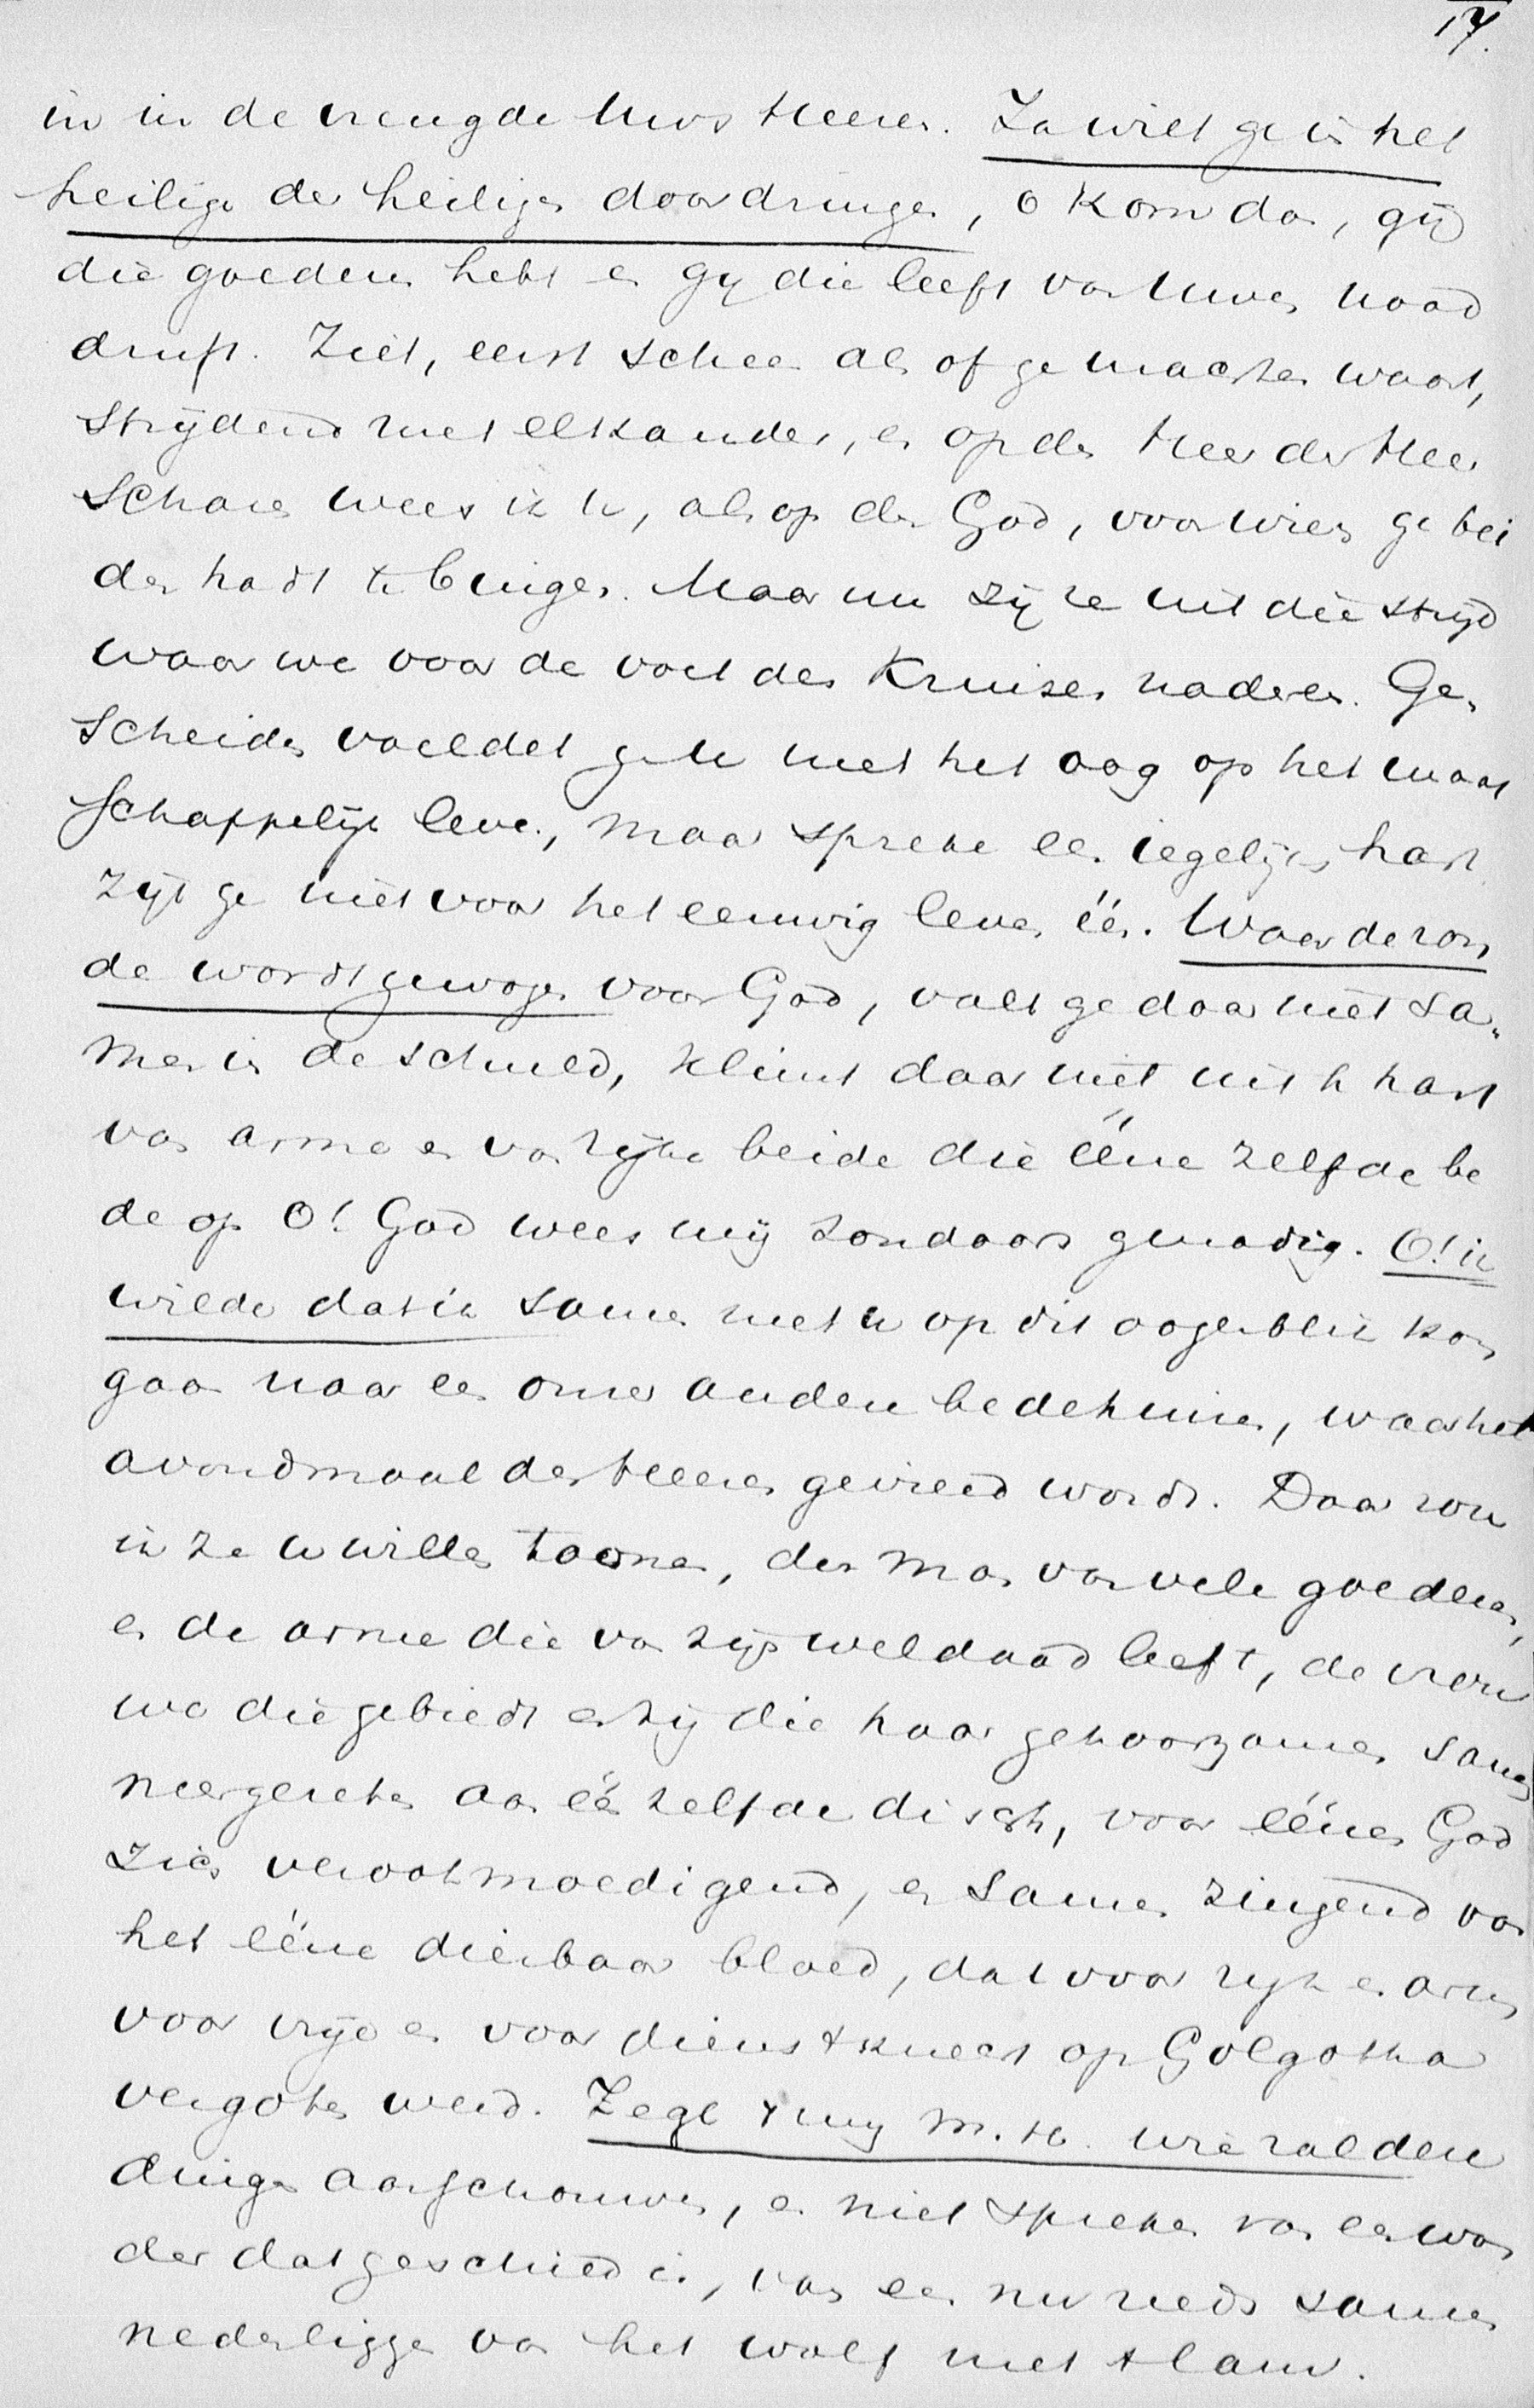 17.
in in de vreugde Uws Heeren. Ja wilt ge in het
heilige der heiligen doordringen, o kom dan, gij
die goederen hebt en gij die leeft van Uwen nood
druft. Ziet, eerst scheen als of ge machten waart,
strijdend met elkander, en op den Heer der Heer
scharen wees ik U, als op den God, voor wien ge bei
den hadt te buigen. Maar nu zij ze uit die strijd
waar we voor de voet des Kruises naderen. Ge-
scheiden voeldet ge U met het oog op het maat
schappelijk leven, maar spreke een iegelijks hart
zijt ge niet voor het eeuwig leven één. Waar de zon
de wordt gewogen voor God, valt ge daar niet sa-
men in de schuld, klimt daar niet uit h hart
van arme en van rijke beide die ééne zelfde be
de op O! God wees mij zondaars genadig. O! ik
wilde dat ik samen met u op dit oogenblik kon
gaan naar een onzer andere bedehuizen, waar het
avondmaal des Heeren gevierd wordt. Daar zou
ik ze u willen toonen, den man van vele goederen,
en de arme die van zijn weldaad leeft, de vrou
we die gebiedt en zij die haar gehoorzamen samen
neergezeten aan één zelfde disch, voor éénen God
zich verootmoedigend, en samen zingend van
het ééne dierbaar bloed, dat voor rijk en arm
voor vrije en voor dienstknecht op Golgotha
vergoten werd. Zegt & mij M. H. wie zal deze
dingen aanschouwen, en niet spreken van een won
der dat geschied is, van een nu reeds samen
nederliggen van het wolf met t lam.